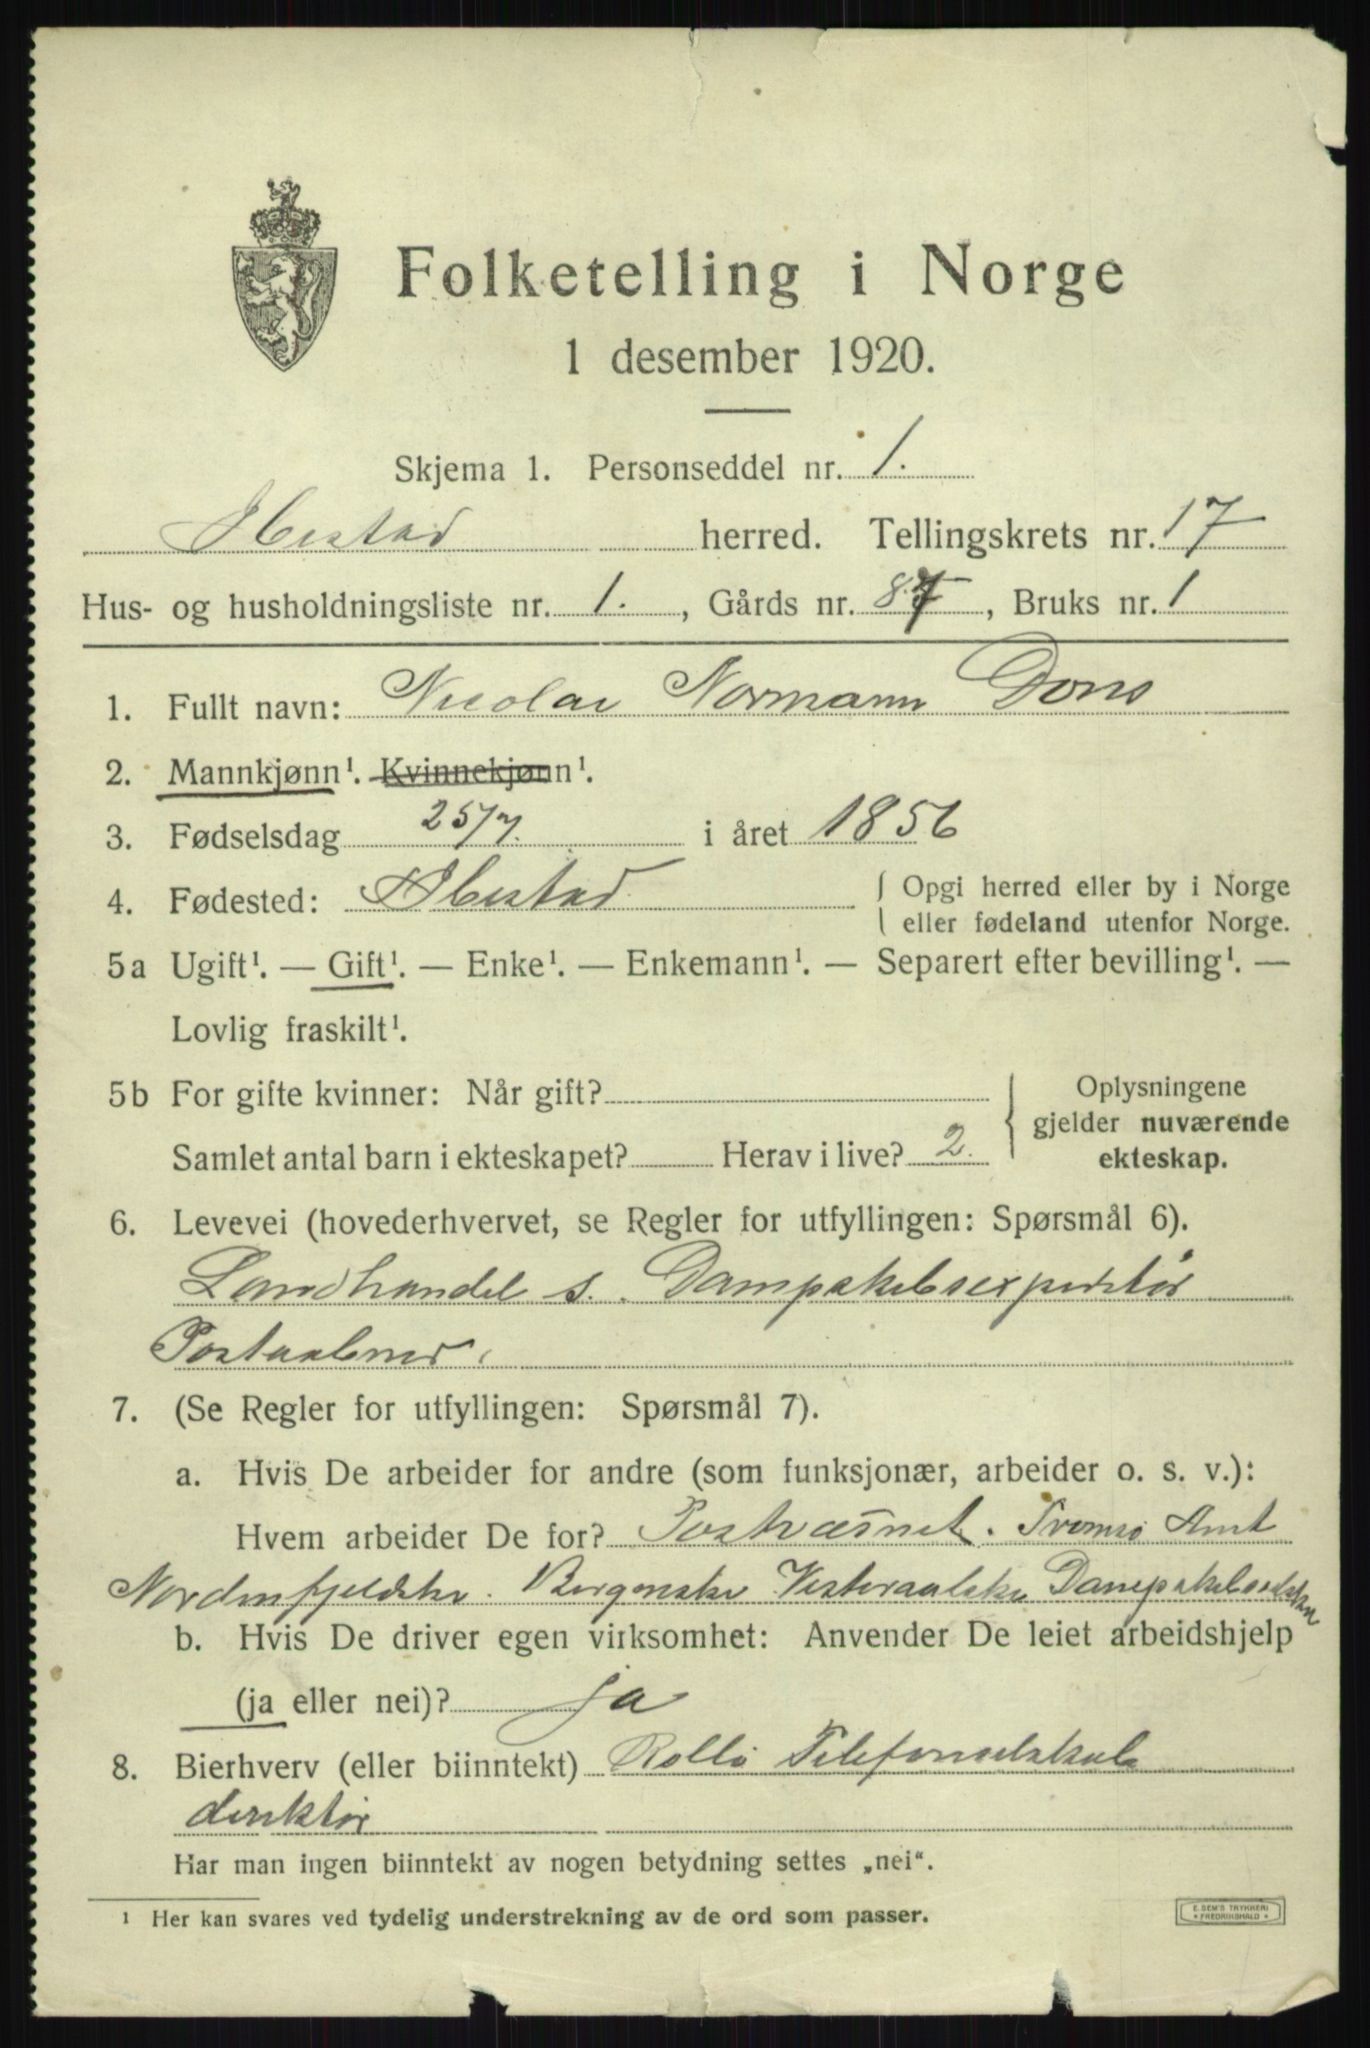 Folketelling i Norge
1 desember 1920.
Skjema 1. Personseddel nr. 1.
Ibestad herred. Tellingskrets nr. 17
Hus- og husholdningsliste nr. 1. , Gårds nr. 87 , Bruks nr. 1
1. Fullt navn: Nicolai Normann Dons
2. Mannkjønn¹. Kvinnekjønn¹.
3. Fødselsdag 25/7. i året 1856
4. Fødested: Ibestad { Opgi herred eller by i Norge
eller fødeland utenfor Norge.
5a Ugift¹. — Gift¹. — Enke¹. — Enkemann¹. — Separert efter bevilling¹. —
Lovlig fraskilt¹.
5b For gifte kvinner: Når gift?
Samlet antal barn i ekteskapet? Herav i live? 2.
Oplysningene
gjelder nuværende
ekteskap.
6. Levevei (hovederhvervet, se Regler for utfyllingen: Spørsmål 6).
Landhandel s. Dampskibsexpeditør
Postaabner.
7. (Se Regler for utfyllingen: Spørsmål 7).
a. Hvis De arbeider for andre (som funksjonær, arbeider o. s. v.):
Hvem arbeider De for? Postvæsnet. Tromsø Amt
Nordenfjeldske. Bergenske Vesteraalske Dampskibsselskap
b. Hvis De driver egen virksomhet: Anvender De leiet arbeidshjelp
(ja eller nei)? ja
8. Bierhverv (eller biinntekt) Rollø Telefonselskab
direktør
Har man ingen biinntekt av nogen betydning settes „nei“.
¹ Her kan svares ved tydelig understrekning av de ord som passer.
E. SEM'S TRYKKERI
* FREDRIKSHALD *